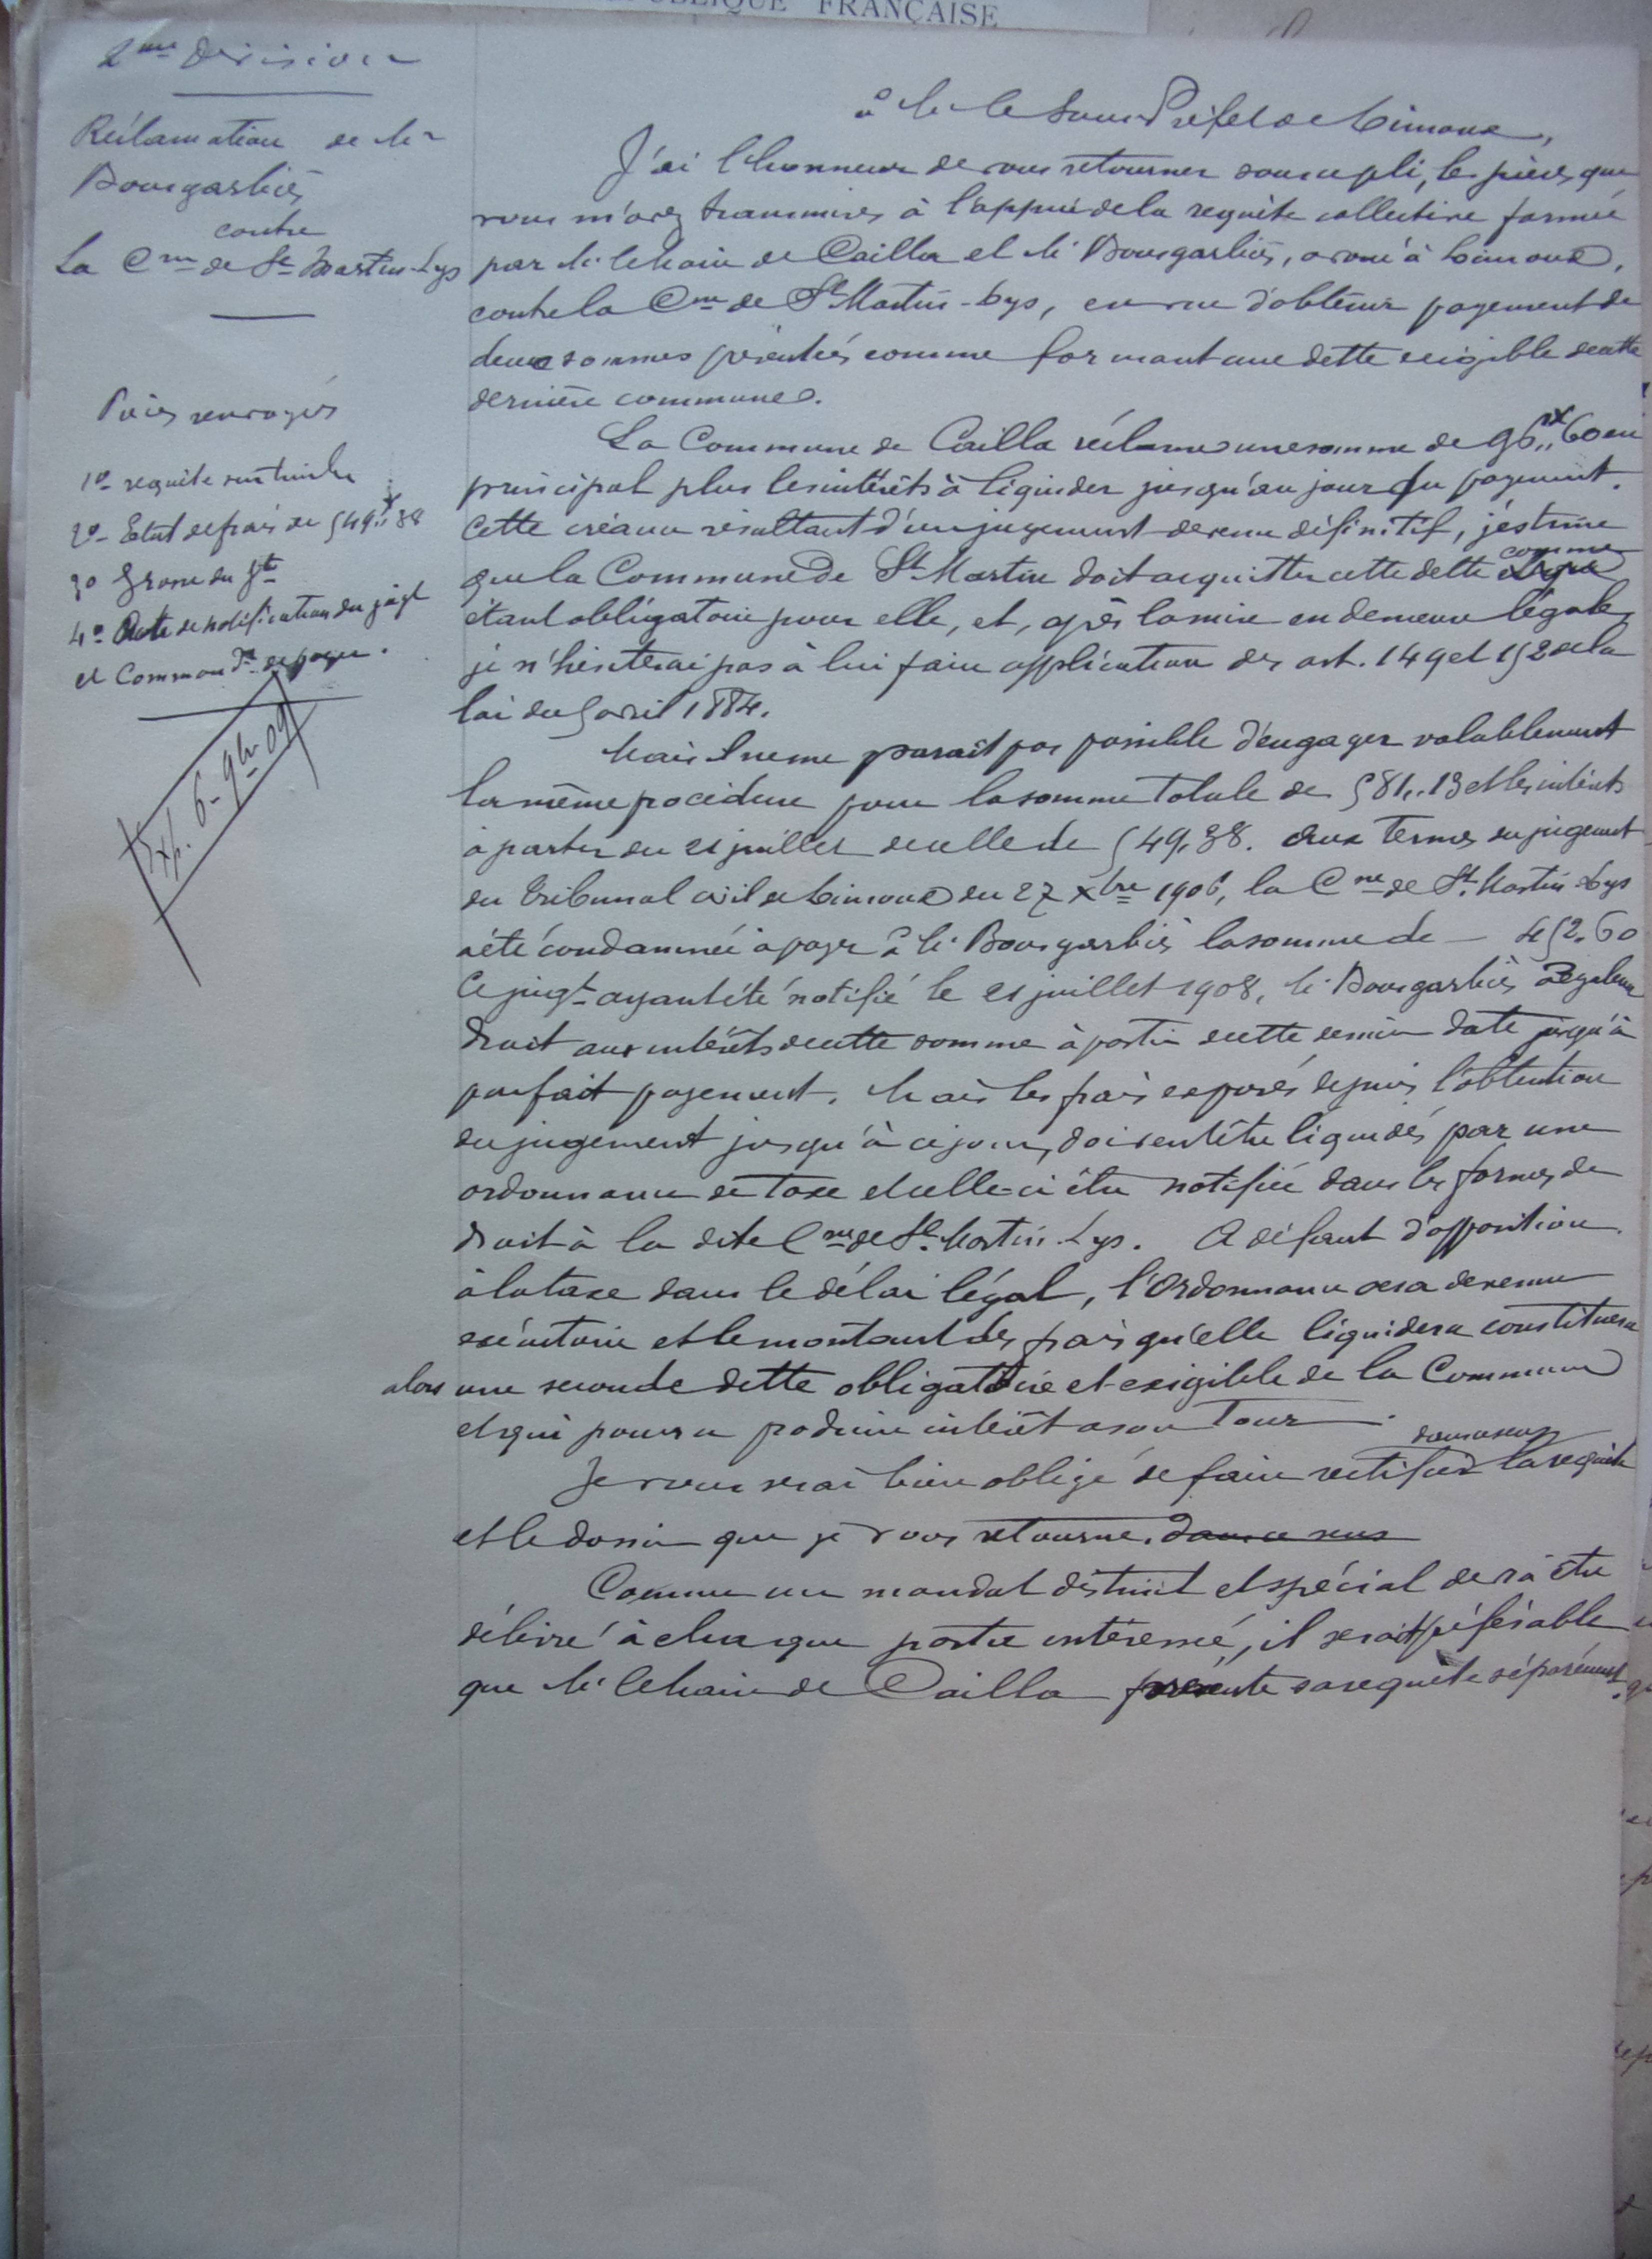 RÉPUBLIQUE FRANÇAISE
2me Division
Réclamation de Mr
Bourgarbiès
contre
La Cne de St Martin-Lys
Pièces renvoyées
1º requête sur timbre
2º Etat de frais de 549f,,38
3º Grosse du Jgt
4º Acte de notification du jugt
et Commandt de payer.
Exp. 6-9bre 09
à M. le Sous Préfet de Limoux,
J'ai l'honneur de vous retourner sous ce pli, les pièces que
vous m'avez transmises à l'appui de la requête collective formée
par M. le Maire de Cailla et Mr Bourgarbiès, avoué à Limoux,
contre la Cne de St Martin-Lys, en vue d'obtenir payement de
deux sommes présentées comme formant une dette exigible de cette
dernière commune.
La Commune de Cailla réclame une somme de 96f,,60 en
principal plus les intérêts à liquider jusqu'au jour du payement.
Cette créance résultant d'un jugement devenu définitif, j'estime
que la Commune de St Martin doit acquitter cette dette comme
étant obligatoire pour elle, et, après la mise en demeure légale,
je n'hésiterai pas à lui faire application des art. 149 et 152 de la
loi du 5 avril 1884.
Mais il ne me paraît pas possible d'engager valablement
la même procédure pour la somme totale de 581,,13 et les intérêts
à partir du 21 juillet de celle de 549,38. Aux termes du jugement
du Tribunal civil de Limoux du 27 xbre 1906, la Cne de St. Martin-Lys
a été condamnée à payer à Mr Bourgarbiès la somme de — 452,60
Ce jugt ayant été notifié le 21 juillet 1908, Mr Bourgarbiès a également
droit aux intérêts de cette somme à partir de cette dernière date jusqu'à
parfait payement. Mais les frais exposés depuis l'obtention
du jugement jusqu'à ce jour, doivent être liquidés par une
ordonnance de taxe et celle-ci être notifiée dans les formes de
droit à la dite Cne de St. Martin-Lys. A défaut d'opposition
à la taxe dans le délai légal, l'Ordonnance sera devenue
exécutoire et le montant des frais qu'elle liquidera constituera
alors une seconde dette obligatoire et exigible de la Commune
et qui pourra produire intérêt à son tour.
Je vous serai bien obligé de faire rectifier dans ce sens la requête
et le dossier que je vous retourne. dans ce sens
Comme un mandat distinct et spécial devra être
délivré à chaque partie intéressée, il serait préférable
que M. le Maire de Cailla présente sa requête séparément.